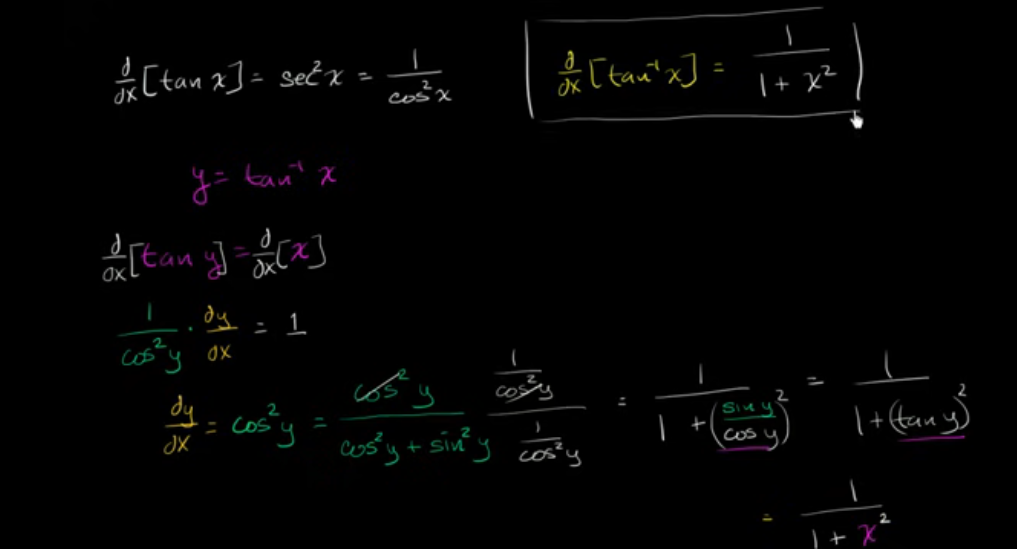 d/dx [tan x] = sec² x = 1/cos² x
d/dx [tan⁻¹ x] = 1/(1 + x²)
y = tan⁻¹ x
d/dx [tan y] = d/dx [x]
1/cos² y · dy/dx = 1
dy/dx = cos² y = cos² y/(cos² y + sin² y) (1/cos² y)/(1/cos² y) = 1/(1 + (sin y/cos y)²) = 1/(1 + (tan y)²)
= 1/(1 + x²)